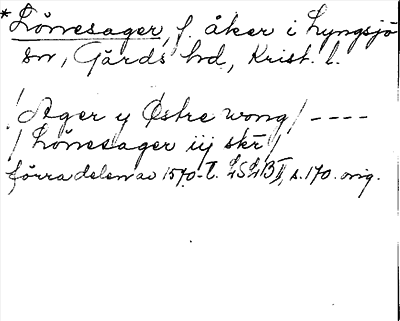 *Lönesager, f. åker i Lyngsjö
sn, Gärds hd, Krist. l.
/Ager y Østre wong/ ----
/Lönesager iij skr/
förra delen av 1570-t. LSLB II, s. 170. orig.